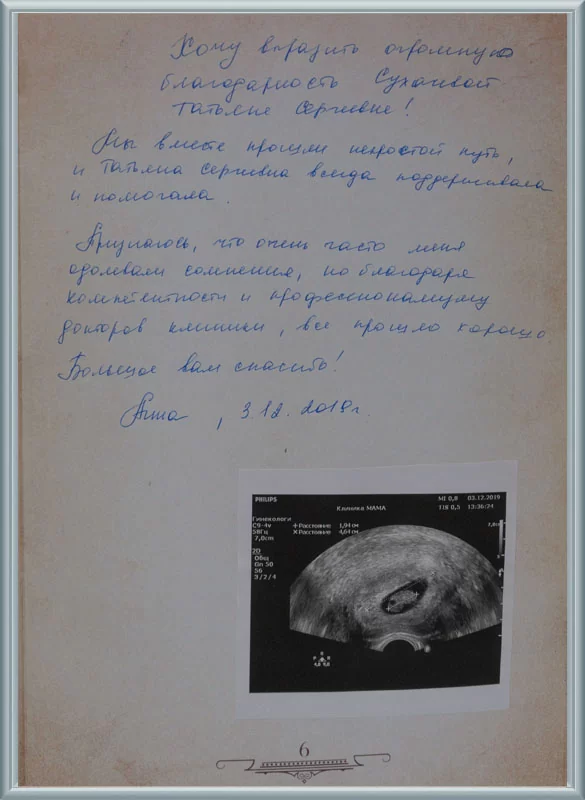 Хочу выразить огромную
благодарность Сухачевой
Татьяне Сергеевне!
Мы вместе прошли непростой путь,
и Татьяна Сергеевна всегда поддерживала
и помогала.
Признаюсь, что очень часто меня
одолевали сомнения, но благодаря
компетентности и профессионализму
докторов клиники, все прошло хорошо.
Большое вам спасибо!
Анна, 3.12.2019г.
PHILIPS
MI 0,8 03.12.2019
Клиника МАМА
TIS 0,5 13:36:24
Гинекологи
C9-4v
58Гц
7,0cm
+ Расстояние 1,94 см
× Расстояние 4,64 см
2D
Общ
Gn 50
56
3/2/4
6